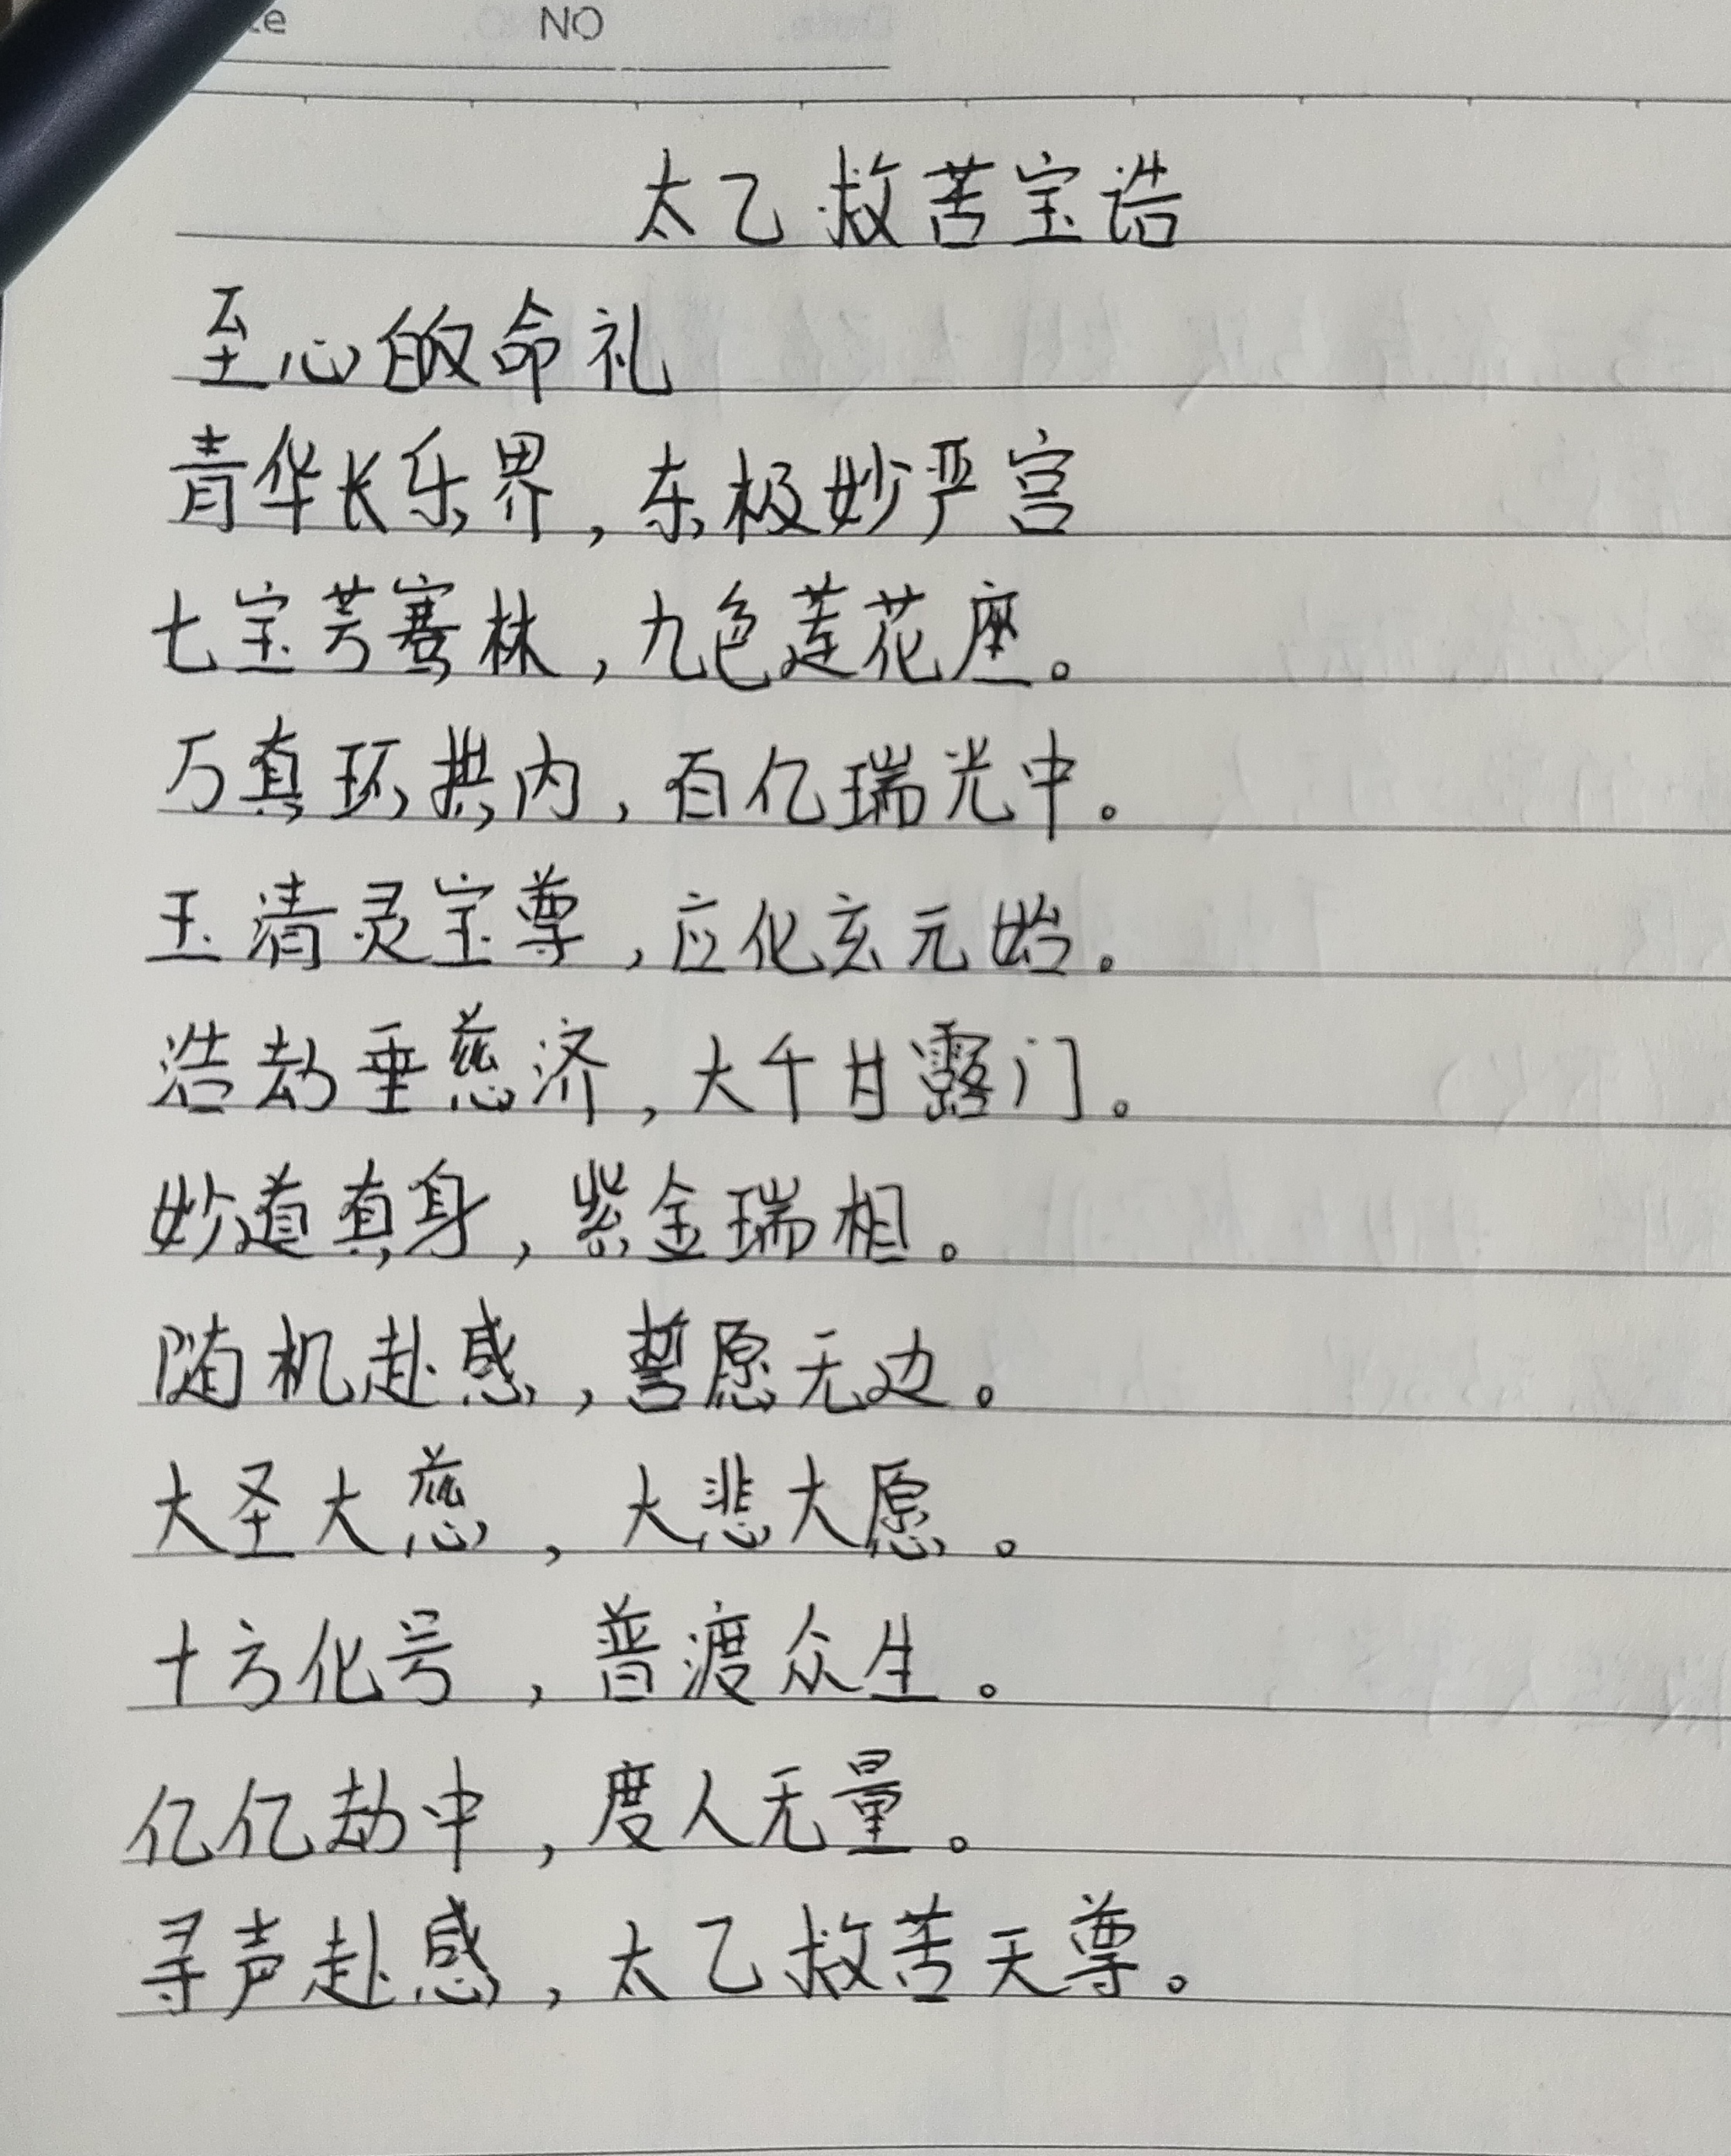 NO
太乙救苦宝诰
至心皈命礼
青华长乐界，东极妙严宫
七宝芳骞林，九色莲花座。
万真环拱内，百亿瑞光中。
玉清灵宝尊，应化玄元始。
浩劫垂慈济，大千甘露门。
妙道真身，紫金瑞相。
随机赴感，誓愿无边。
大圣大慈，大悲大愿。
十方化号，普渡众生。
亿亿劫中，度人无量。
寻声赴感，太乙救苦天尊。